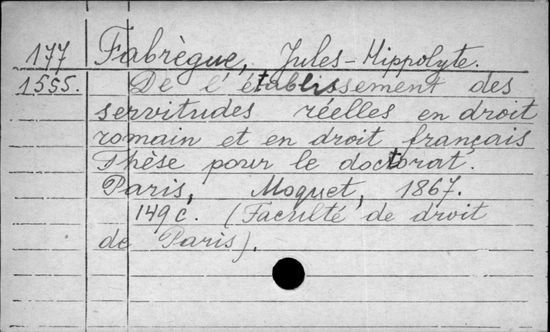 177 Fabrègue, Jules-Hippolyte.
1555. De l'établissement des
servitudes réelles en droit
romain et en droit français
Thèse pour le doctorat.
Paris, Moquet, 1867.
149 c. (Faculté de droit
de Paris).